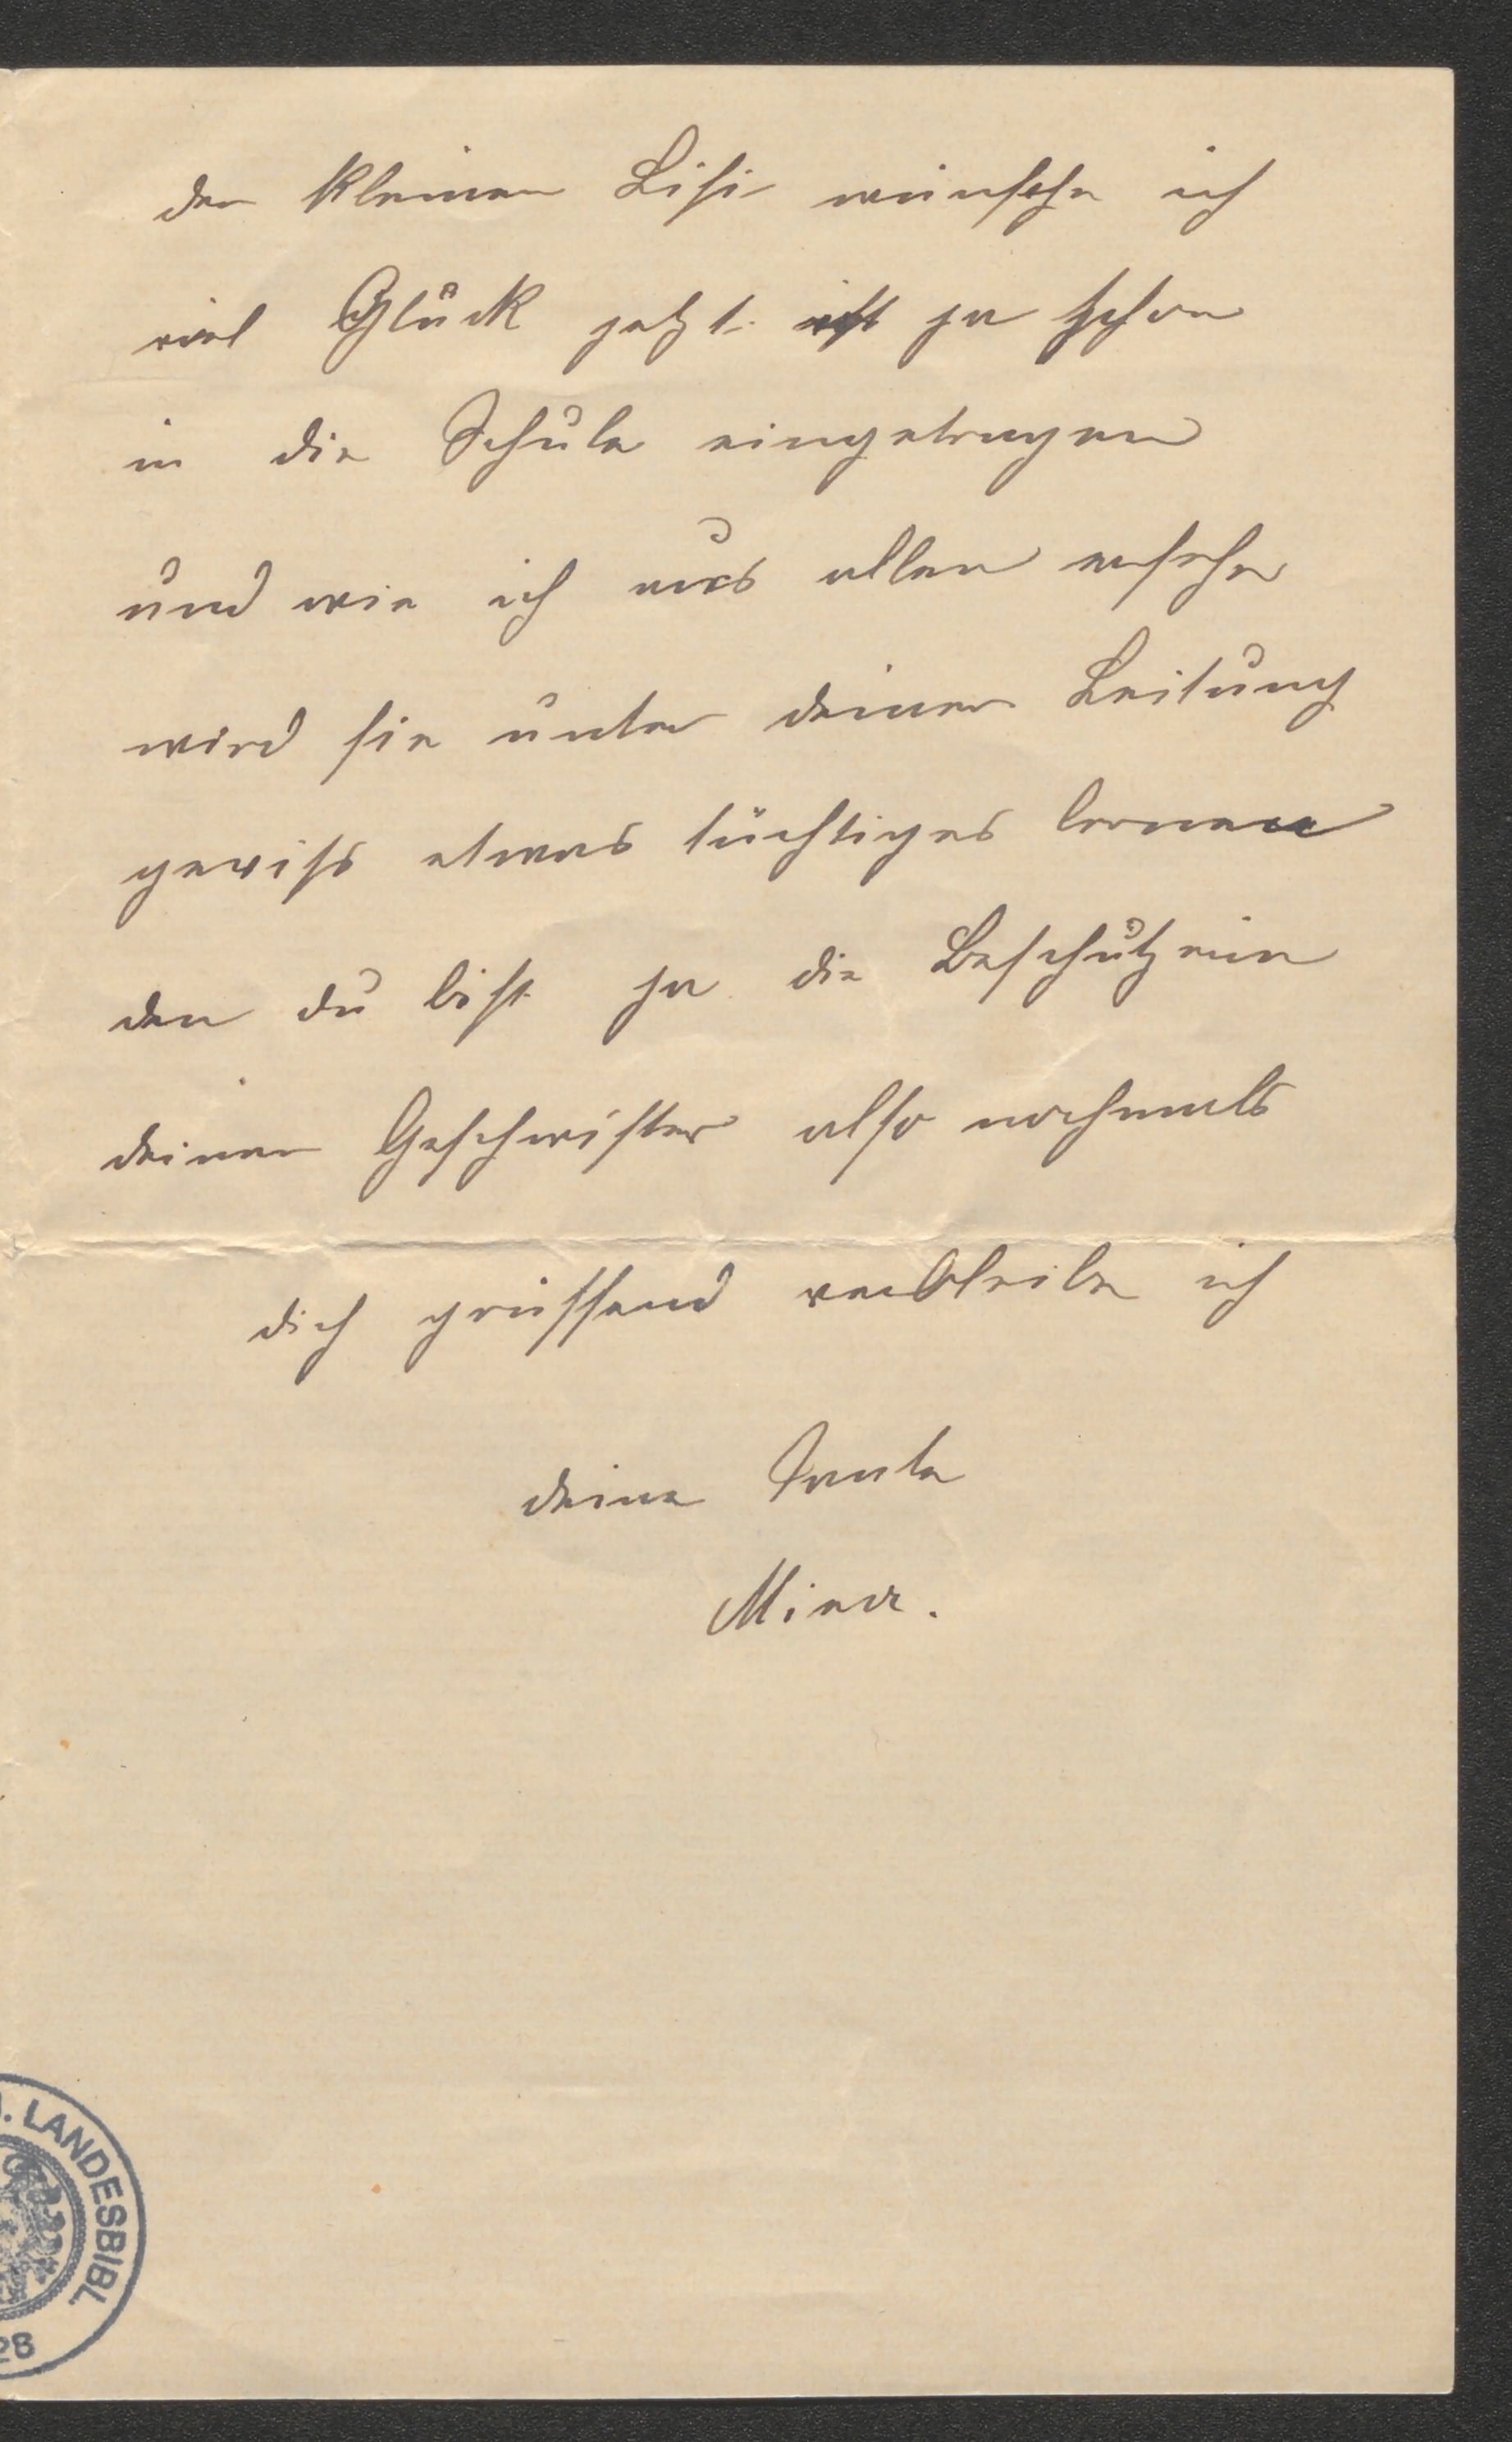 der kleinen Lisi wünsche ich
viel Glück jetzt ist ja schon
in die Schule eingetragen
und wie ich aus allen ersehe
wird sie unter deiner Leitung
gewiss etwas tüchtiges lernen
den du bist ja die Beschützerin
deiner Geschwister also nochmals
dich grüssend verbleibe ich
deine Tante
Mina.
. LANDESBIBL
28